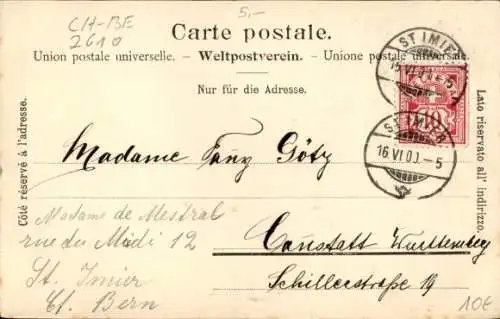 CH-BE
2610
5,-
Carte postale.
Union postale universelle. - Weltpostverein. - Unione postale universale
Nur für die Adresse.
Côté réservé à l'adresse.
Lato riservato all' indirizzo.
ST IMIER
ST IMIER
16 VI 0 - 5
10
Madame Fany Götz
Cannstatt Württemberg
Schillerstraße 19
Madame de Mestral
rue du Midi 12
St. Imier
Ct. Bern
10€